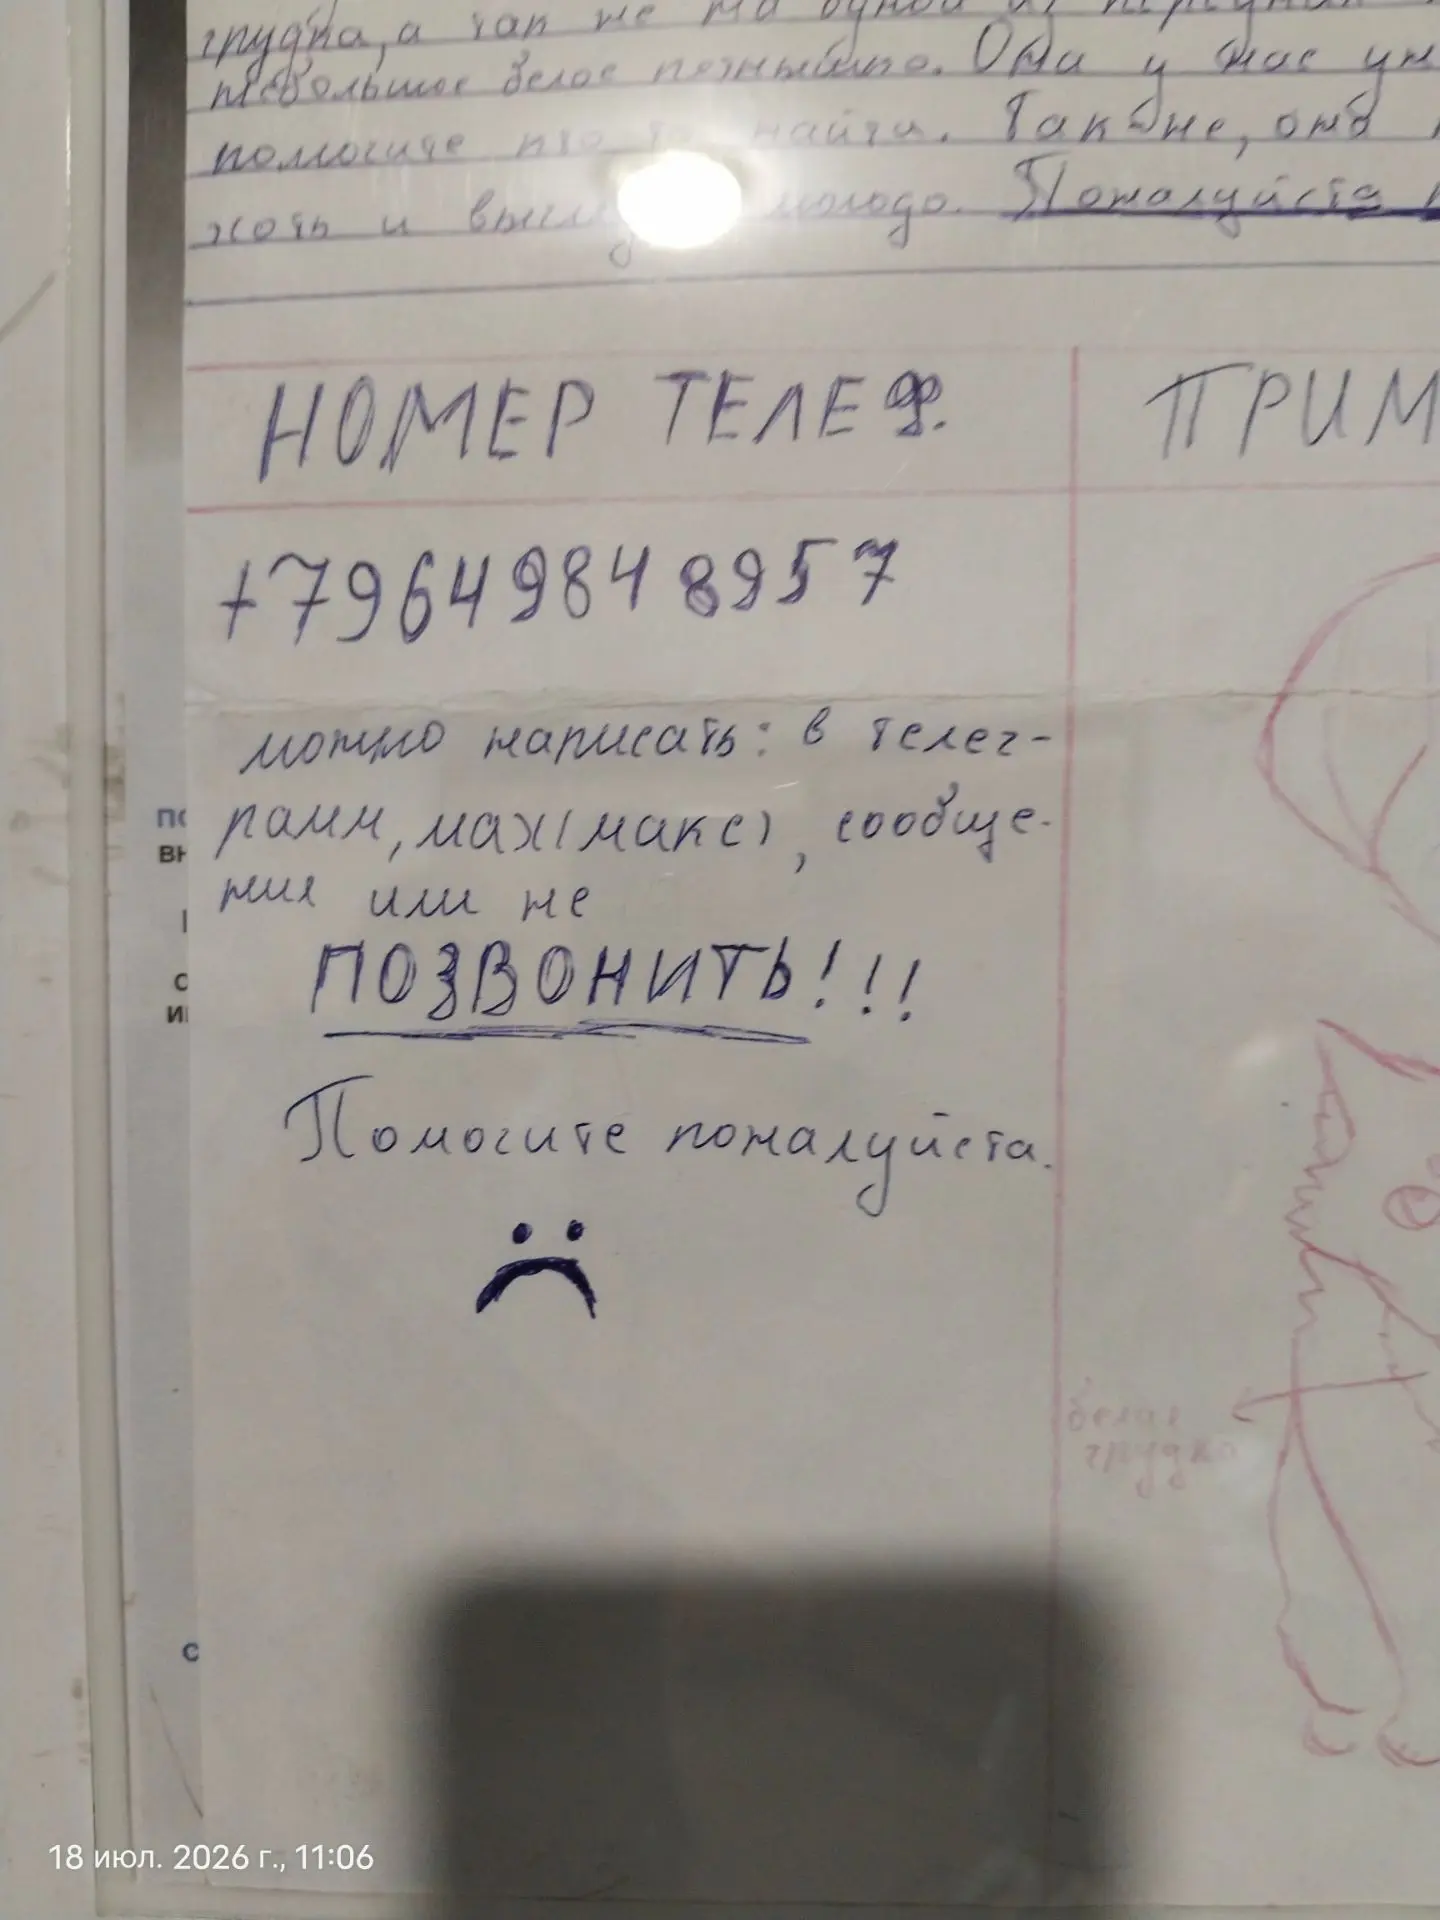 грудка, а так же на одной из передних
небольшое белое пятнышко. Она у нас
помогите кто то найти. Так же, она
хоть и молодо. Пожалуйста
НОМЕР ТЕЛЕФ.
ПРИМ
+79649848957
можно написать: в телег-
рамм, мах(макс), сообще-
ния или не
ПОЗВОНИТЬ!!!
Помогите пожалуйста.
белая
грудка
18 июл. 2026 г., 11:06